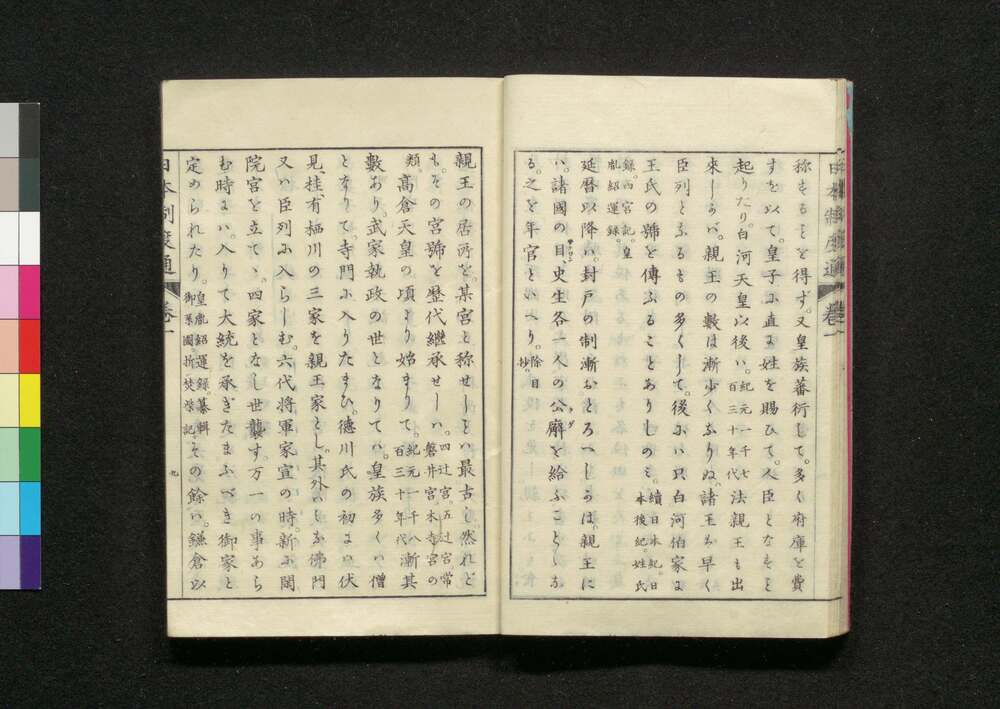 日本制度通 卷一
称することを得ず。又皇族蕃衍して。多く府庫を費
すを以て。皇子に直に姓を賜ひて。人臣となすこと
起りたり。白河天皇以後は。紀元一千七百三十年代法親王も出
來しかバ。親王の數は漸少くなりぬ。諸王も早く
臣列となるもの多くして。後には只白河伯家に
王氏の號を傳ふることありしのミ。續日本紀。日本後紀。姓氏
録。西宮記。皇胤紹運録。
延暦以降ハ。封戸の制漸おとろへしかば。親王に
ハ。諸國の目、史生各一人の公廨を給ふことゝな
る。之を年官といへり。除目抄。
親王の居所を。某宮と称せしことハ最古し然れど
も。その宮號を歴代繼承せしハ。四辻宮。五辻宮常磐井宮。木寺宮の
類。高倉天皇の頃より始まりて。紀元一千八百三十年代漸其
數あり。武家執政の世となりてハ。皇族多くハ僧
となりて。寺門に入りたまひ。德川氏の初まハ伏
見、桂、有栖川の三家を親王家とし。其外ハミな佛門
又ハ臣列に入らしむ。六代将軍家宣の時。新に閑
院宮を立てゝ。四家となし世襲す。万一の事あら
む時は。入りて大統を承ぎたまふべき御家と
定められたり。皇胤紹運録。纂輯御系圖。折焚柴記。その餘ハ。鎌倉以
日本制度通 卷一
九